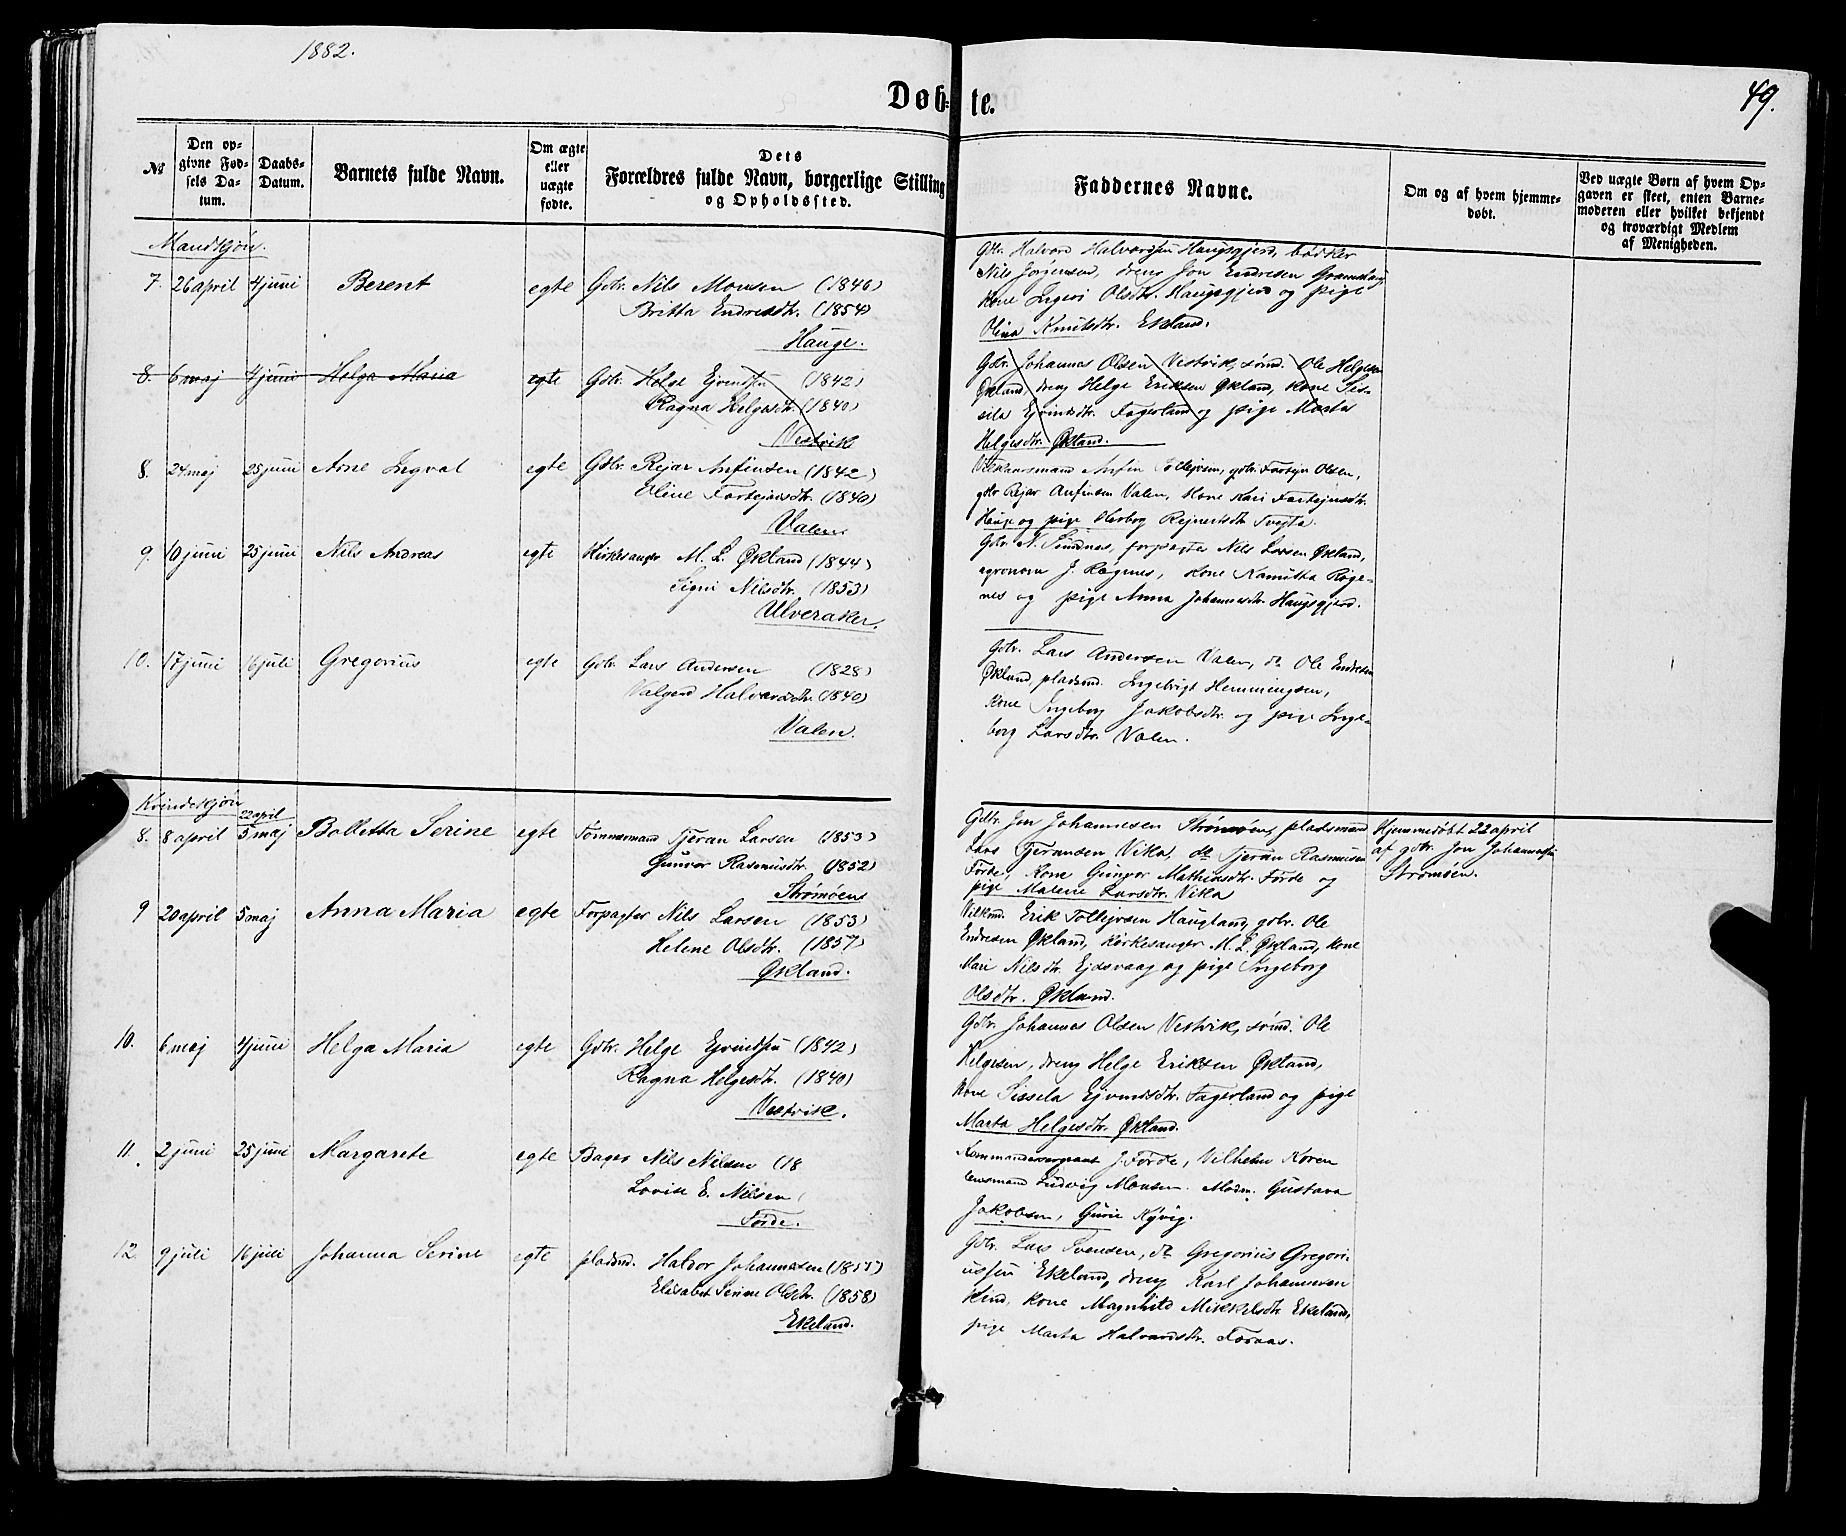 1882.
49.
Døb- te.
№
Den op-
givne Fød-
sels Da-
tum.
Daabs-
Datum.
Barnets fulde Navn.
Om ægte
eller
uægte
fødte.
Dets
Forældres fulde Navn, borgerlige Stilling
og Opholdssted.
Faddernes Navne.
Om og af hvem hjemme-
døbt.
Ved uægte Børn af hvem Op-
gaven er skeet, enten Barne-
moderen eller hvilket bekjendt
og troværdigt Medlem
af Menigheden.
Mandskjøn.
7. 26 april 4 juni Berent egte Gbr. Nils Monsen (1846)
Britta Endresdtr. (1854)
Hauge.
Gbr. Halvord Halvordsen Haugsgjerd, bødker
Nils Jørgensen, dreng Jon Endresen
Kone Ingeri Olsdtr. Haugsgjerd og pige
Olina Knutsdtr. Ekland.
8. 6 maj 4 juni Helga Maria egte Gbr. Helge Ejvindsen (1842)
Ragna Helgesdtr. (1840)
Vestvik
Gbr. Johannes Olsen Vestvik, sønd. Ole Helgesen
Økland, dreng Helge Eriksen Økland, Kone Sis-
sela Ejvindsdtr. Fagerland og pige Marta
Helgesdtr. Økland.
8. 24 maj 25 juni Arne Ingval egte Gbr. Rejar Anfinsen (1842)
Oline Tortejnsdtr. (1840)
Valen
Vilkaarsmand Anfin Tollejvsen, gbr. Olsen,
gbr Rejar Anfinsen Valen, Kone Kari
Hauge og pige Herborg Rejnertsdtr
9. 10 juni 25 juni Nils Andreas egte Kirkesanger M. L. Økland (1844)
Signi Nilsdtr. (1853)
Ulveraker.
Gbr. N. forpagter Nils Larsen Økland,
agronom J. Røgenes, Kone Kamilla Røge-
nes og pige Anna Johannesdtr. Haugsgjerd.
10. 17 juni 16 juli Gregorius egte Gbr. Lars Andersen (1828)
Valgerd Halvorsdtr. (1840)
Valen.
Gbr. Lars Andersen Valen, do Ole Endresen
Økland, pladsmd. Ingebrigt Hemmingsen,
Kone Ingeborg Jakobsdtr. og pige Inge-
borg Larsdtr. Valen.
Kvindeskjøn
8. 8 april 22 april
5 maj Bolletta Serine egte Tømmermand Tjeran Larsen (1853)
Gunvor Rasmusdtr. (1852)
Strømøens
Gbr. Jon Johannesen Strømøen, pladsmand
Lars Tjeransen Vikla, do Tjeran Rasmusen
Førde, Kone Gunvor Mathiasdtr. Førde og
pige Malene Larsdtr. Vikla
Hjemmedøbt 22 april
af gbr. Jon Johannessen
Strømøen.
9 20 april 5 maj Anna Maria egte Forpagter Nils Larsen (1853)
Helene Olsdtr. (1857)
Økland.
Vilkmd. Erik Tollejvsen Haugland, gbr. Ole
Endresen Økland, Kirkesanger M. L. Økland, Kone
Mari Nilsdtr. Ejdsvaag og pige Ingeborg
Olsdtr. Økland.
10. 6 maj 4 juni Helga Maria egte Gbr. Helge Ejvindsen (1842)
Ragna Helgesdtr. (1840)
Vestvik.
Gbr. Johannes Olsen Vestvik, sønd. Ole
Helgesen, dreng Helge Eriksen Økland,
Kone Sissela Ejvindsdtr. Fagerland og pige
Marta Helgesdtr. Økland.
11. 2 juni 25 juni Margarete egte Bager Nils Nilsen (18
Lovise E. Nilsen (
Førde.
Kommandersergeant J. Førde, Vilhelm Koren
lensmand Ludvig Monsen. Madm. Gustava
Jakobsen, Gurie Nyvig.
12. 9 juli 16 juli Johanna Serine egte pladsmd. Haldor Johannesen (1855)
Elisabet Serine Olsdtr. (1858)
Ekeland.
Gbr. Lars Svensen, do Gregorius Gregori-
ussen Ekeland, dreng Karl Johannesen
Hind, Kone Magnhild Mikkelsdtr. Ekeland,
pige Marta Halvardsdtr.